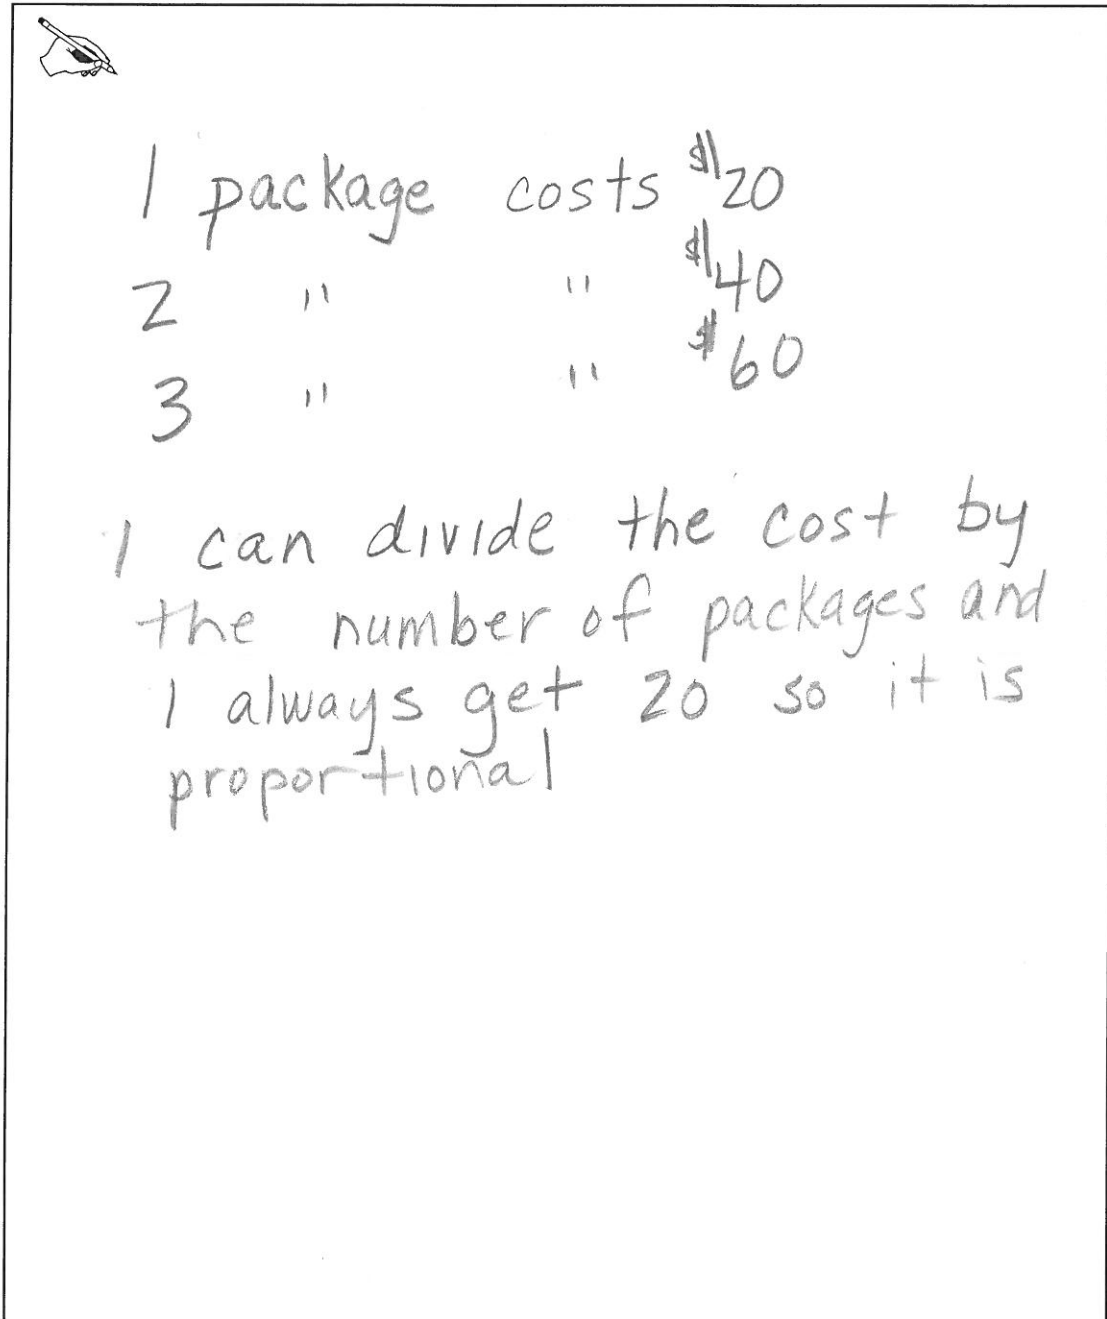 1 package costs $20
2 " " $40
3 " " $60
I can divide the cost by
the number of packages and
I always get 20 so it is
proportional